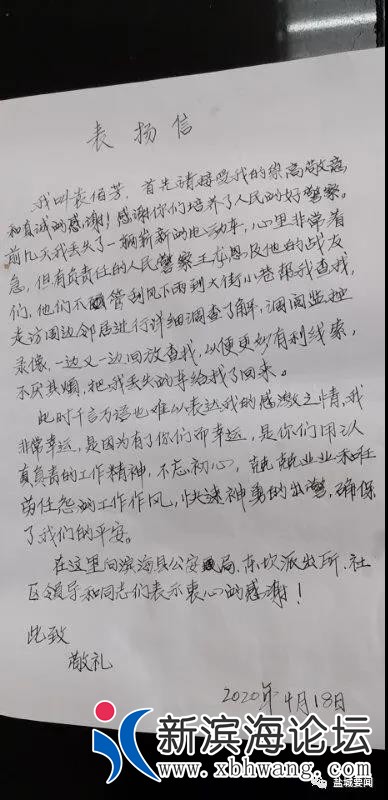 表扬信
我叫袁伯芳，首先请接受我的崇高敬意
和真诚的感谢！感谢你们培养了人民的好警察。
前几天我丢失了一辆崭新的电动车，心里非常着
急，但有负责任的人民警察王龙恩及他的战友
们，他们不管刮风下雨到大街小巷帮我查找，
走访周边邻居进行详细调查了解，调阅监控
录像，一边又一边回放查找，以便更多有利线索，
不厌其烦，把我丢失的车给找了回来。
此时千言万语也难以表达我的感激之情，我
非常幸运，是因为有了你们而幸运，是你们用认
真负责的工作精神，不忘初心，兢兢业业和任
劳任怨的工作作风，快速神勇的出警，确保
了我们的平安。
在这里向滨海县公安局、东坎派出所、社
区领导和同志们表示衷心的感谢！
此致
敬礼
2020年4月18日
新滨海论坛
www.xbhwang.com
盐城要闻